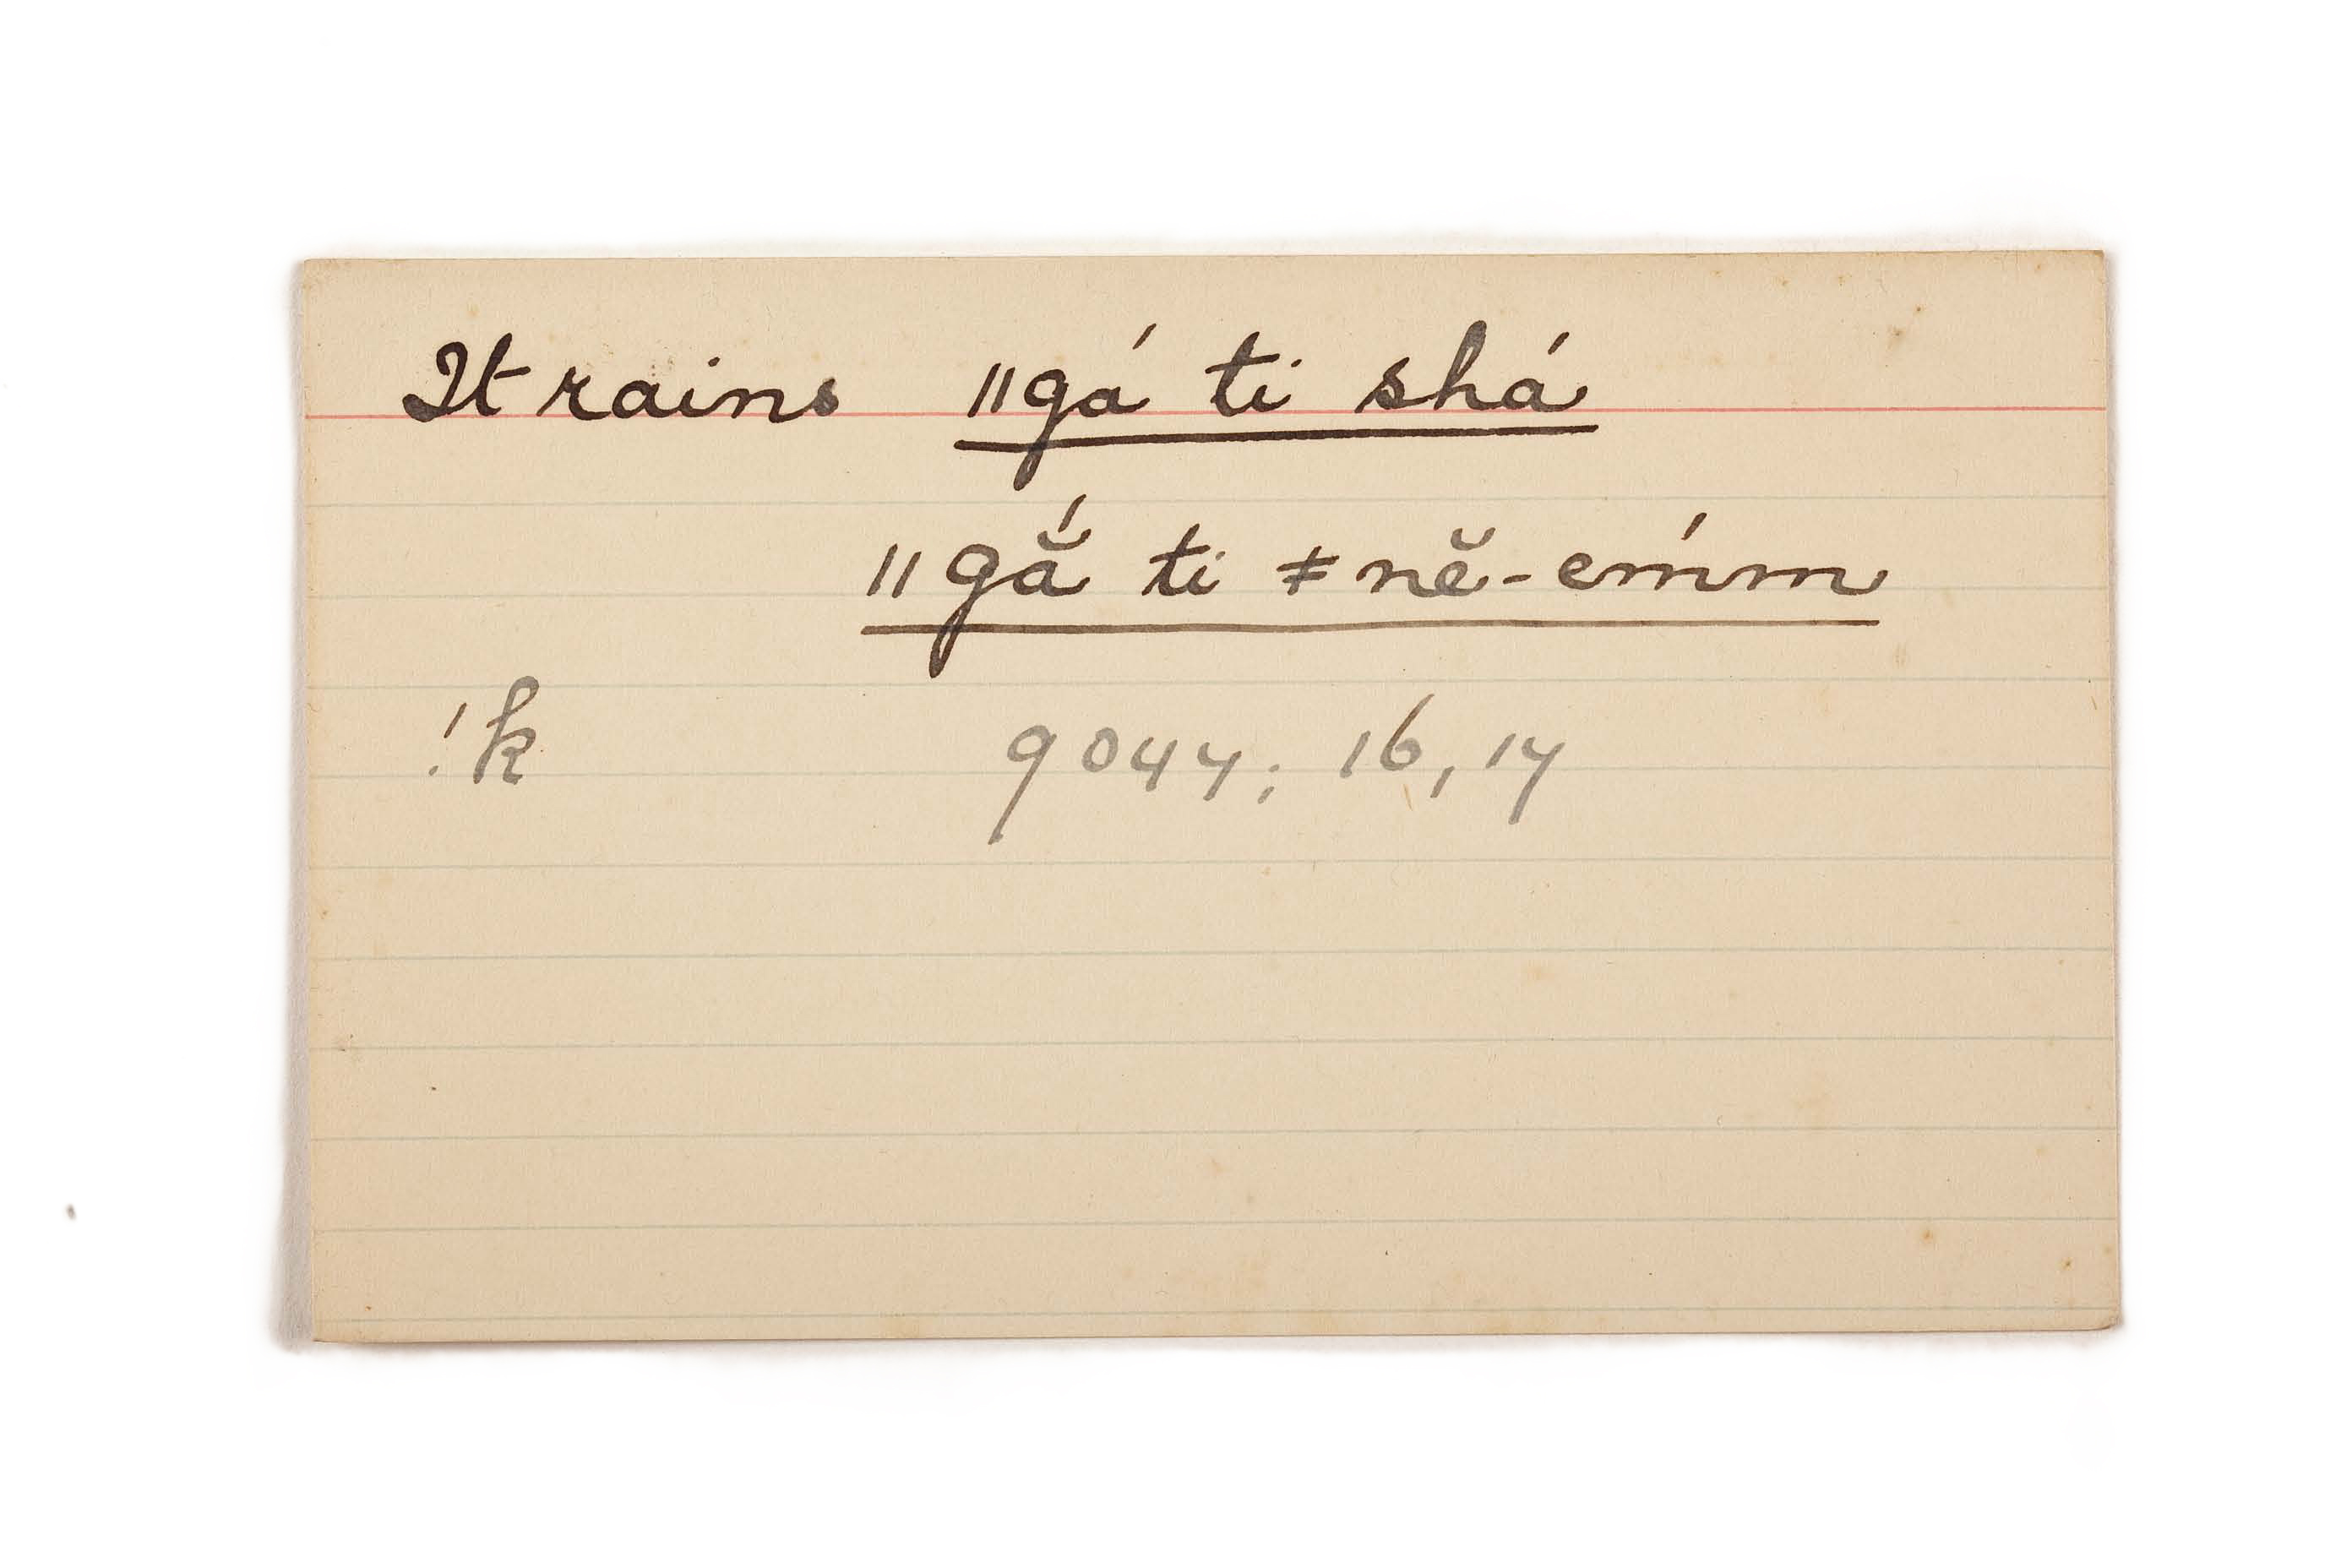 It rains ǁgá ti shá
ǁgā̆́ ti ǂnĕ-eḿm
!k 9047; 16, 17